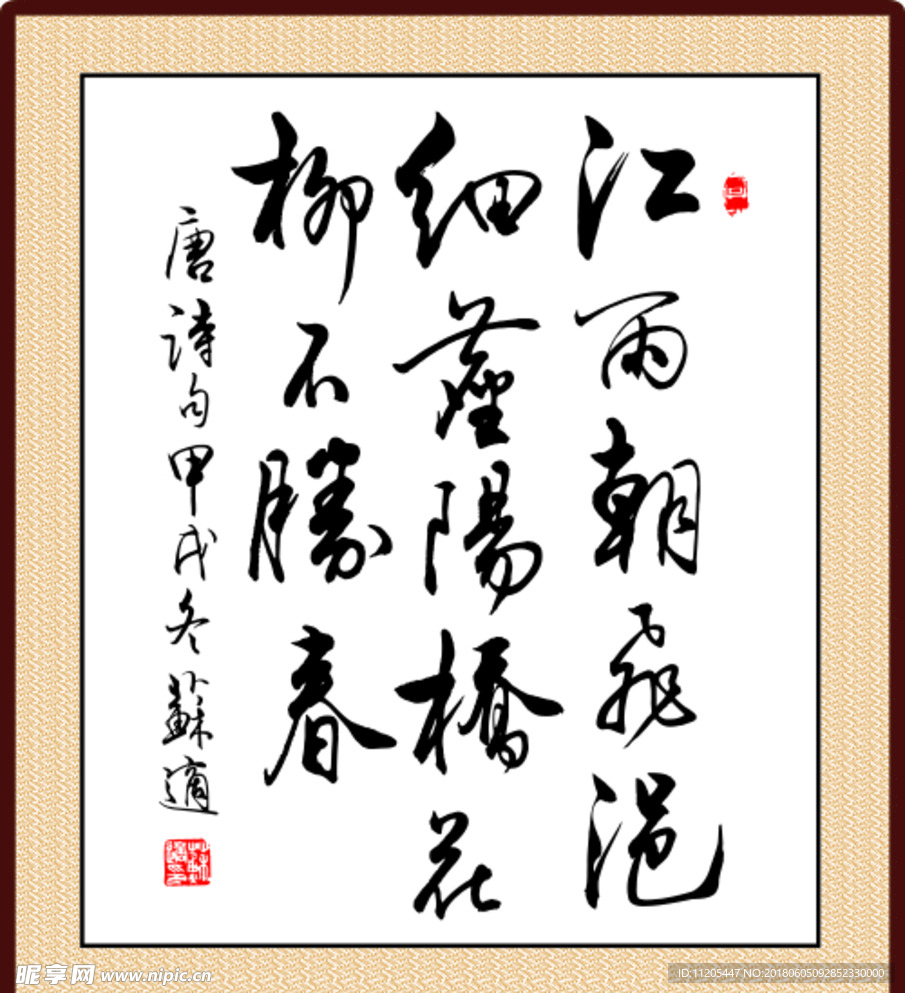 江雨朝飛浥
細塵陽橋花
柳不勝春
唐詩句甲戌冬蘇適
昵享网 www.nipic.cn
ID:11205447 NO:20180605092852330000